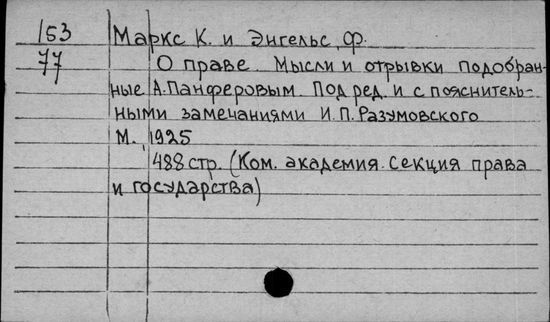 153 Маркс К. и Энгельс, Ф.
77 О праве. Мысли и отрывки подобран-
ные А. Панферовым. Под ред. и с пояснитель-
ными замечаниями И.П. Разумовского
М., 1925
488 стр. (Ком. академия. Секция права
и государства)